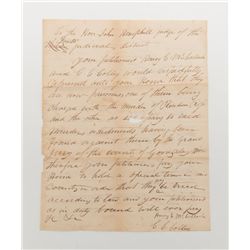 To the Hon John Hemphill judge of the
judicial district
your petitioners Perry G
and C C Colley would respectfully
represent unto your Honor that they
are now prisoners one of them being
charged with the murder of Reuben
and the other as accessory to said
murder indictments having been
found against them by the grand
jury of the county of Gonzales your
therefore your petitioners pray your
Honor to hold a special term in
County in order that they be tried
according to law and your petitioners
as in duty bound will ever pray
&c &c
C C Colley